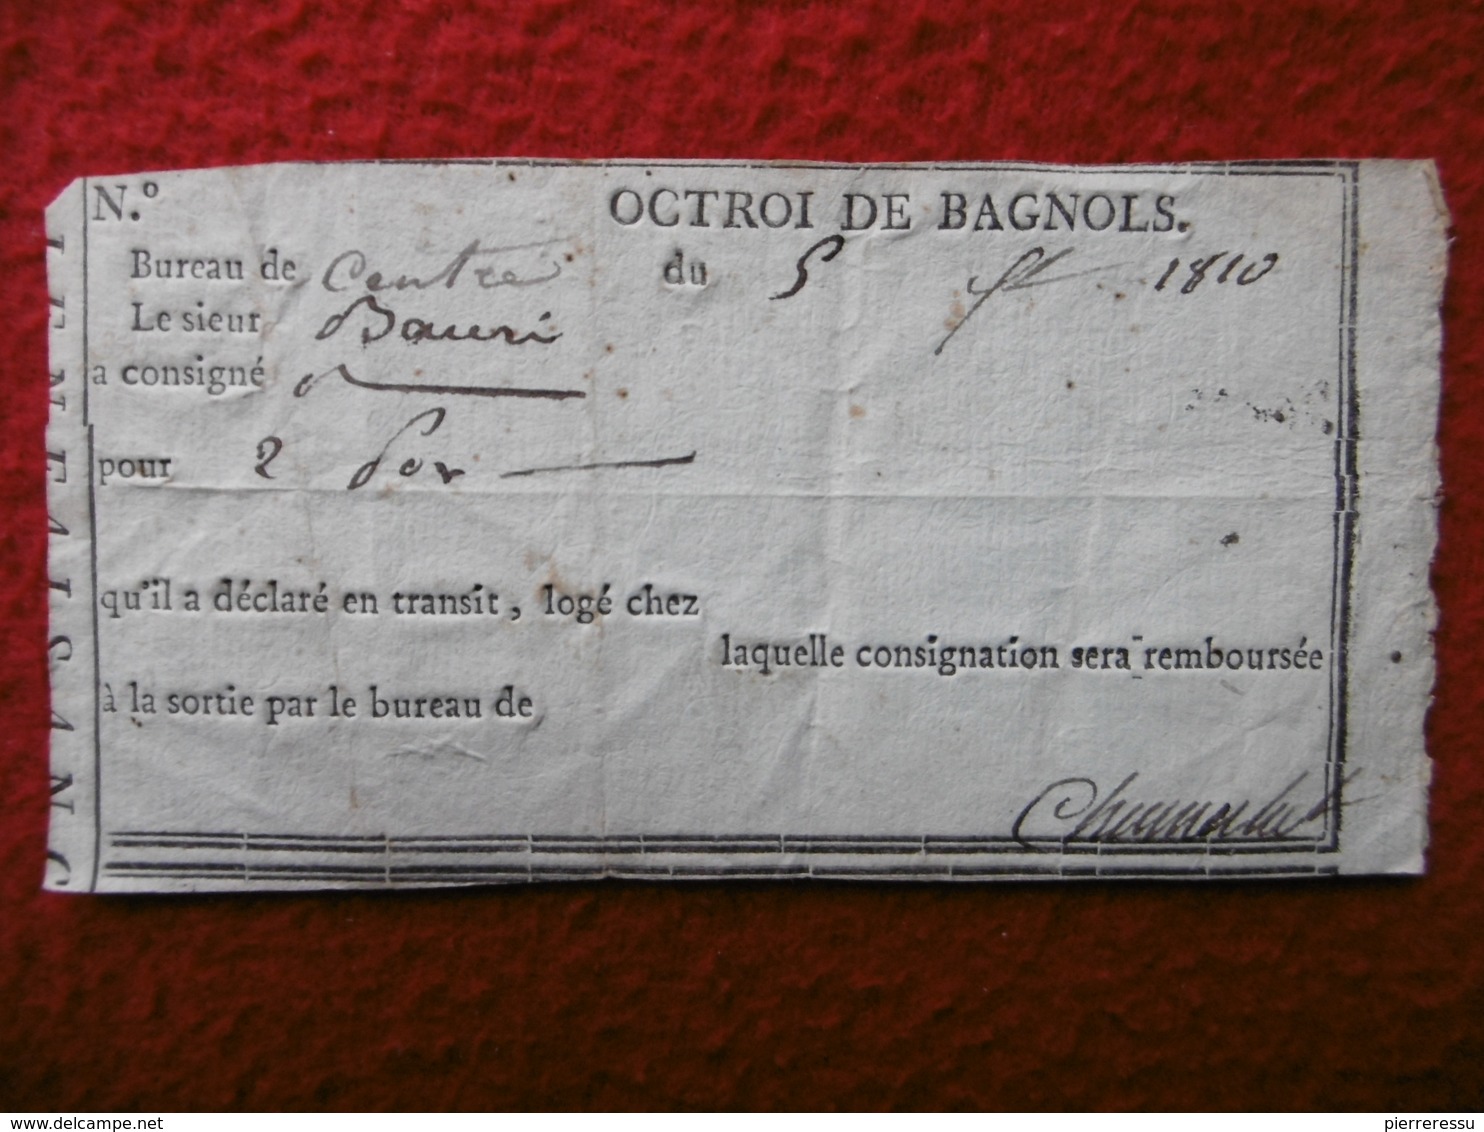 N.º OCTROI DE BAGNOLS.
Bureau de Centre du 5 1810
Le sieur Bauri
a consigné
pour 2
qu'il a déclaré en transit, logé chez
laquelle consignation sera remboursée
à la sortie par le bureau de
delcampe.net
pierreressu